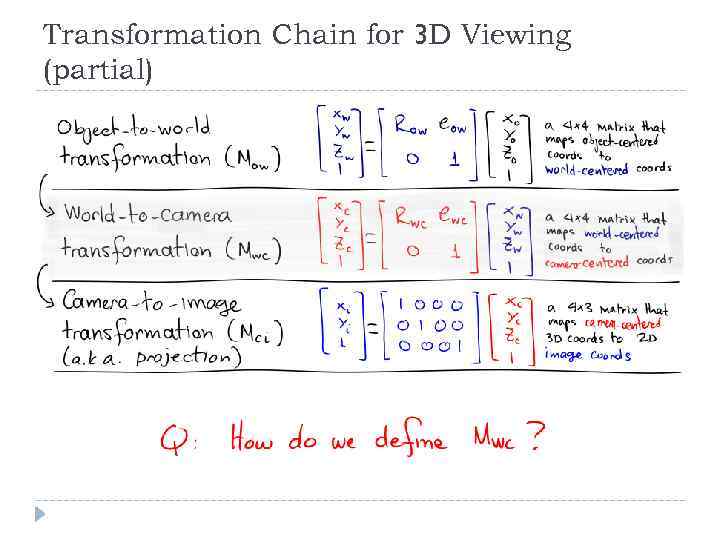 Transformation Chain for 3D Viewing
(partial)
Object-to-world
transformation (Mow)
[xw yw zw 1] = [Row eow 0 1] [xo yo zo 1]
a 4x4 matrix that
maps object-centered
coords to
world-centered coords
World-to-Camera
transformation (Mwc)
[xc yc zc 1] = [Rwc ewc 0 1] [xw yw zw 1]
a 4x4 matrix that
maps world-centered
coords to
camera-centered coords
Camera-to-image
transformation (Mci)
(a.k.a. projection)
[xi yi 1] = [1 0 0 0 0 1 0 0 0 0 0 1] [xc yc zc 1]
a 4x3 matrix that
maps camera-centered
3D coords to 2D
image coords
Q: How do we define Mwc?